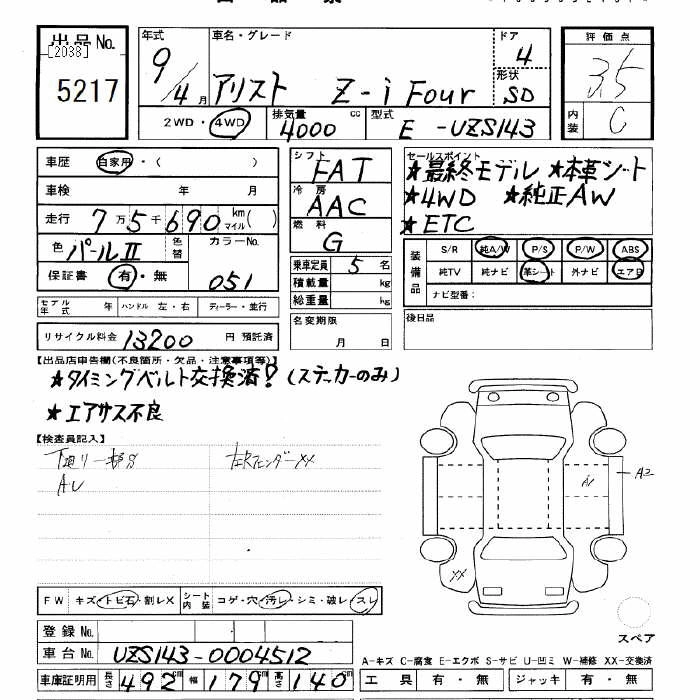 出品No.
[2038]
5217
年式
9/4月
車名・グレード
アリスト Z-i Four
ドア
4
形状
SD
評価点
3.5
内装
C
2WD・4WD
排気量
4000 cc
型式
E-UZS143
車歴 自家用・( )
車検 年 月
走行 7万5千690 km マイル( )
色 パールII 色替 カラーNo. 051
保証書 有・無
モデル年式 年 ハンドル 左・右 ディーラー・並行
リサイクル料金 13200 円 預託済
シフト
FAT
冷房
AAC
燃料
G
乗車定員 5 名
積載量 kg
総重量 kg
名変期限
月 日
セールスポイント
★最終モデル ★本革シート
★4WD ★純正AW
★ETC
装備品
S/R 純A/W P/S P/W ABS
純TV 純ナビ 革シート 外ナビ エアB
ナビ型番:
後日品
【出品店申告欄(不良箇所・欠品・注意事項等)】
★タイミングベルト交換済?(ステッカーのみ)
★エアサス不良
【検査員記入】
下廻り一部S 左Rフェンダーxx
AU
A2
A1
XX
FW キズ・トビ石・割レX シート内装 コゲ・穴・汚レ・シミ・破レ・スレ
登録No.
車台No. UZS143-0004512
車庫証明用 長さ 492 cm 幅 179 cm 高さ 140 cm
スペア
A-キズ C-腐食 E-エクボ S-サビ U-凹ミ W-補修 XX-交換済
工具 有・無 ジャッキ 有・無